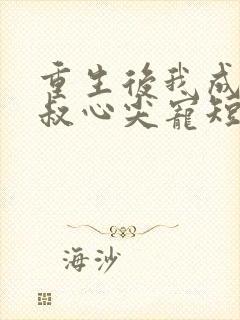 重生後我成
叔心尖寵短
海沙